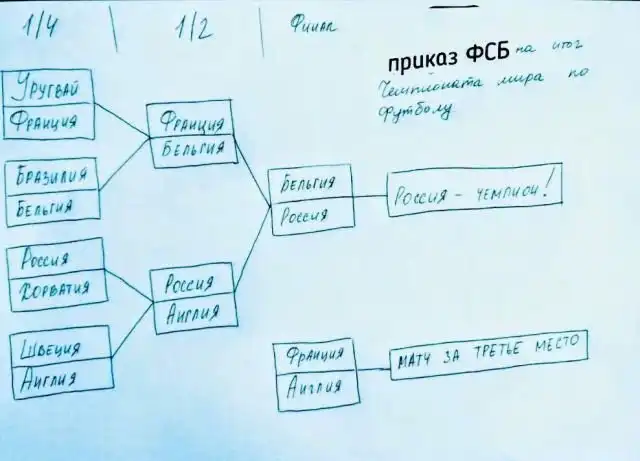 1/4
1/2
Финал
приказ ФСБ на итог
Чемпионата мира по
футболу
Уругвай
Франция
Бразилия
Бельгия
Россия
Хорватия
Швеция
Англия
Франция
Бельгия
Россия
Англия
Бельгия
Россия
Россия - чемпион!
Франция
Англия
Матч за третье место